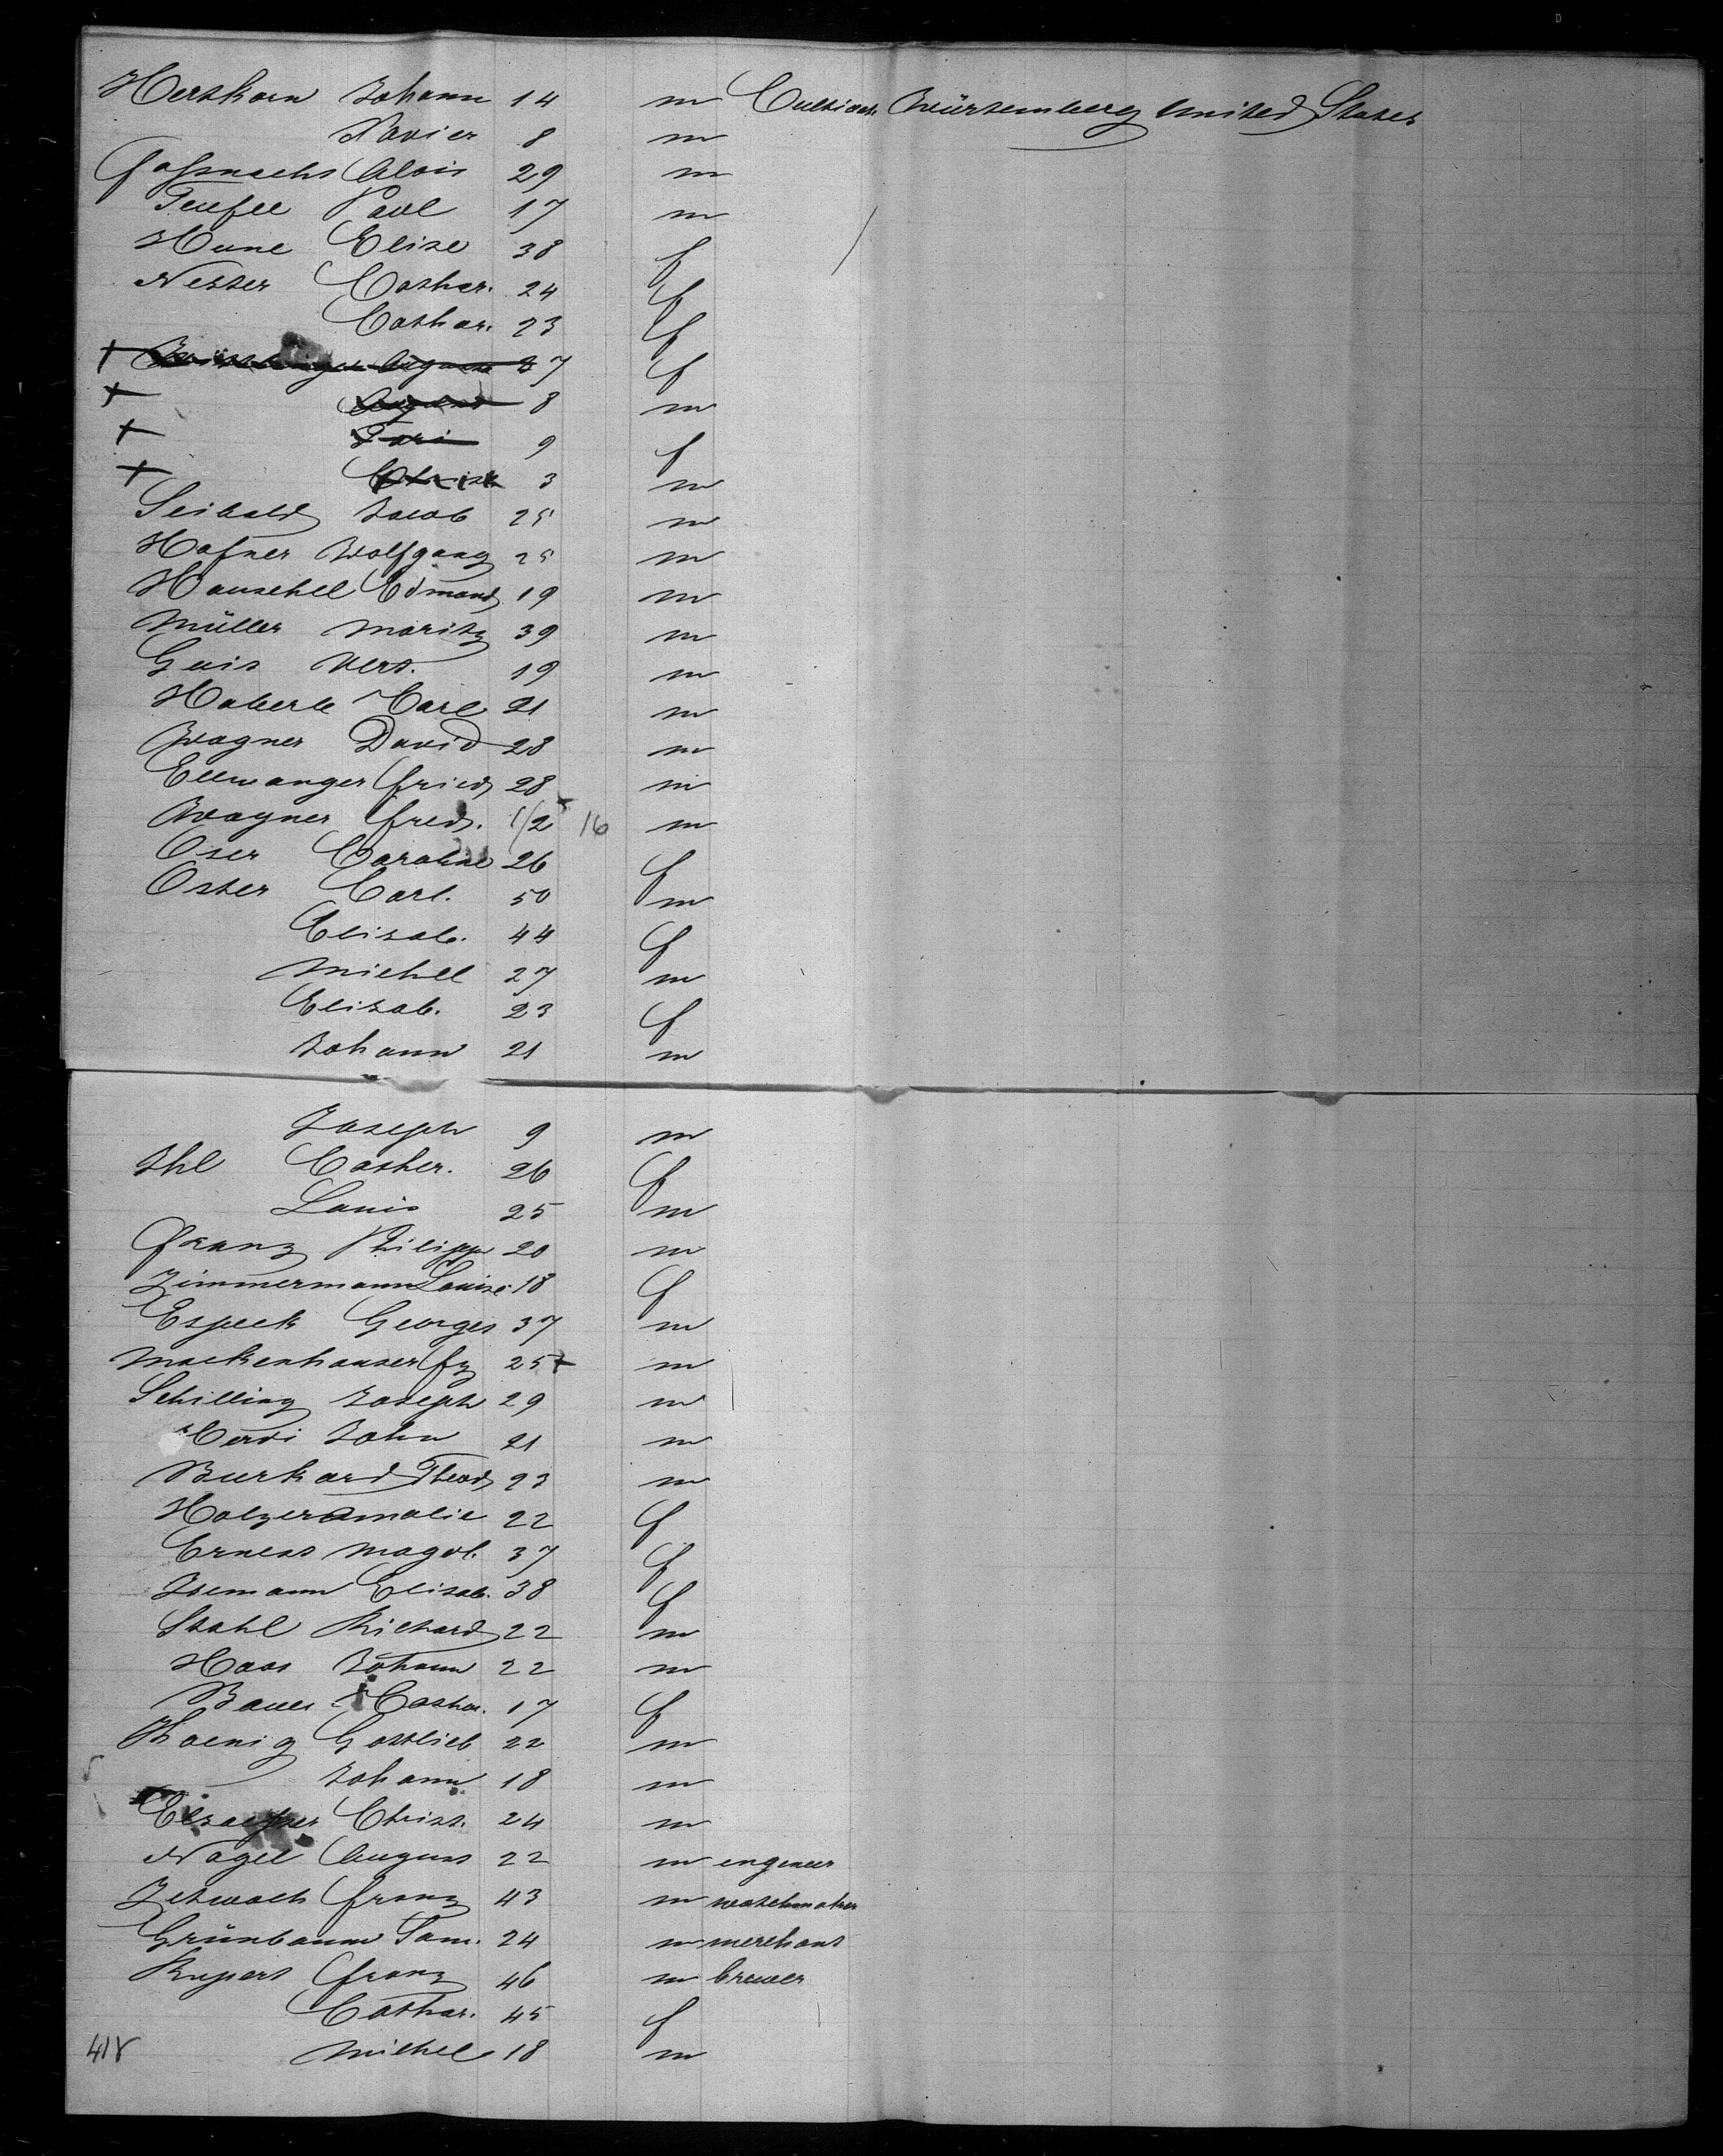 Herskorn Johann 14 m Cultivat. Würtemberg United States
Xavier 8 m
Alois 29 m
Teufel Paul 17 m
Hune Elise 38 f
Nester Cathar. 24 f
Cathar. 23 f
+ 27 f
+ August 8 m
+ 9 f
+ Christ. 3 m
Seibald Jacob 25 m
Hafner Wolfgang 25 m
Hauschel Edmond 19 m
Müller Moritz 39 m
Geis 19 m
Haberle Carl 21 m
Wagner David 28 m
Ellwanger Fried 28 m
Wagner Fred. 1/2 + 16 m
Oser Caroline 26 f
Oster Carl. 50 m
Elisab. 44 f
Michel 27 m
Elisab. 23 f
Johann 21 m
Joseph 9 m
Ihl Cather. 26 f
Louis 25 m
Franz Philipp 20 m
Zimmermann Louise 18 f
Especk Georges 37 m
Mackenhauser Fz 25 + m
Schilling Joseph 29 m
John 21 m
Burkard Theod 23 m
Holzer Amalie 22 f
Ernest Magdl. 37 f
Isemann Elisab. 38 f
Stahl Richard 22 m
Hass Johann 22 m
Bauer Cathar. 17 f
Koenig Gottlieb 22 m
Johann 18 m
Elsaesser Christ. 24 m
Nagel August 22 m engeneer
Franz 43 m watchmaker
Grünbaum Sam. 24 m merchant
Rupert Franz 46 m brewer
Cathar. 45 f
418 Michel 18 m